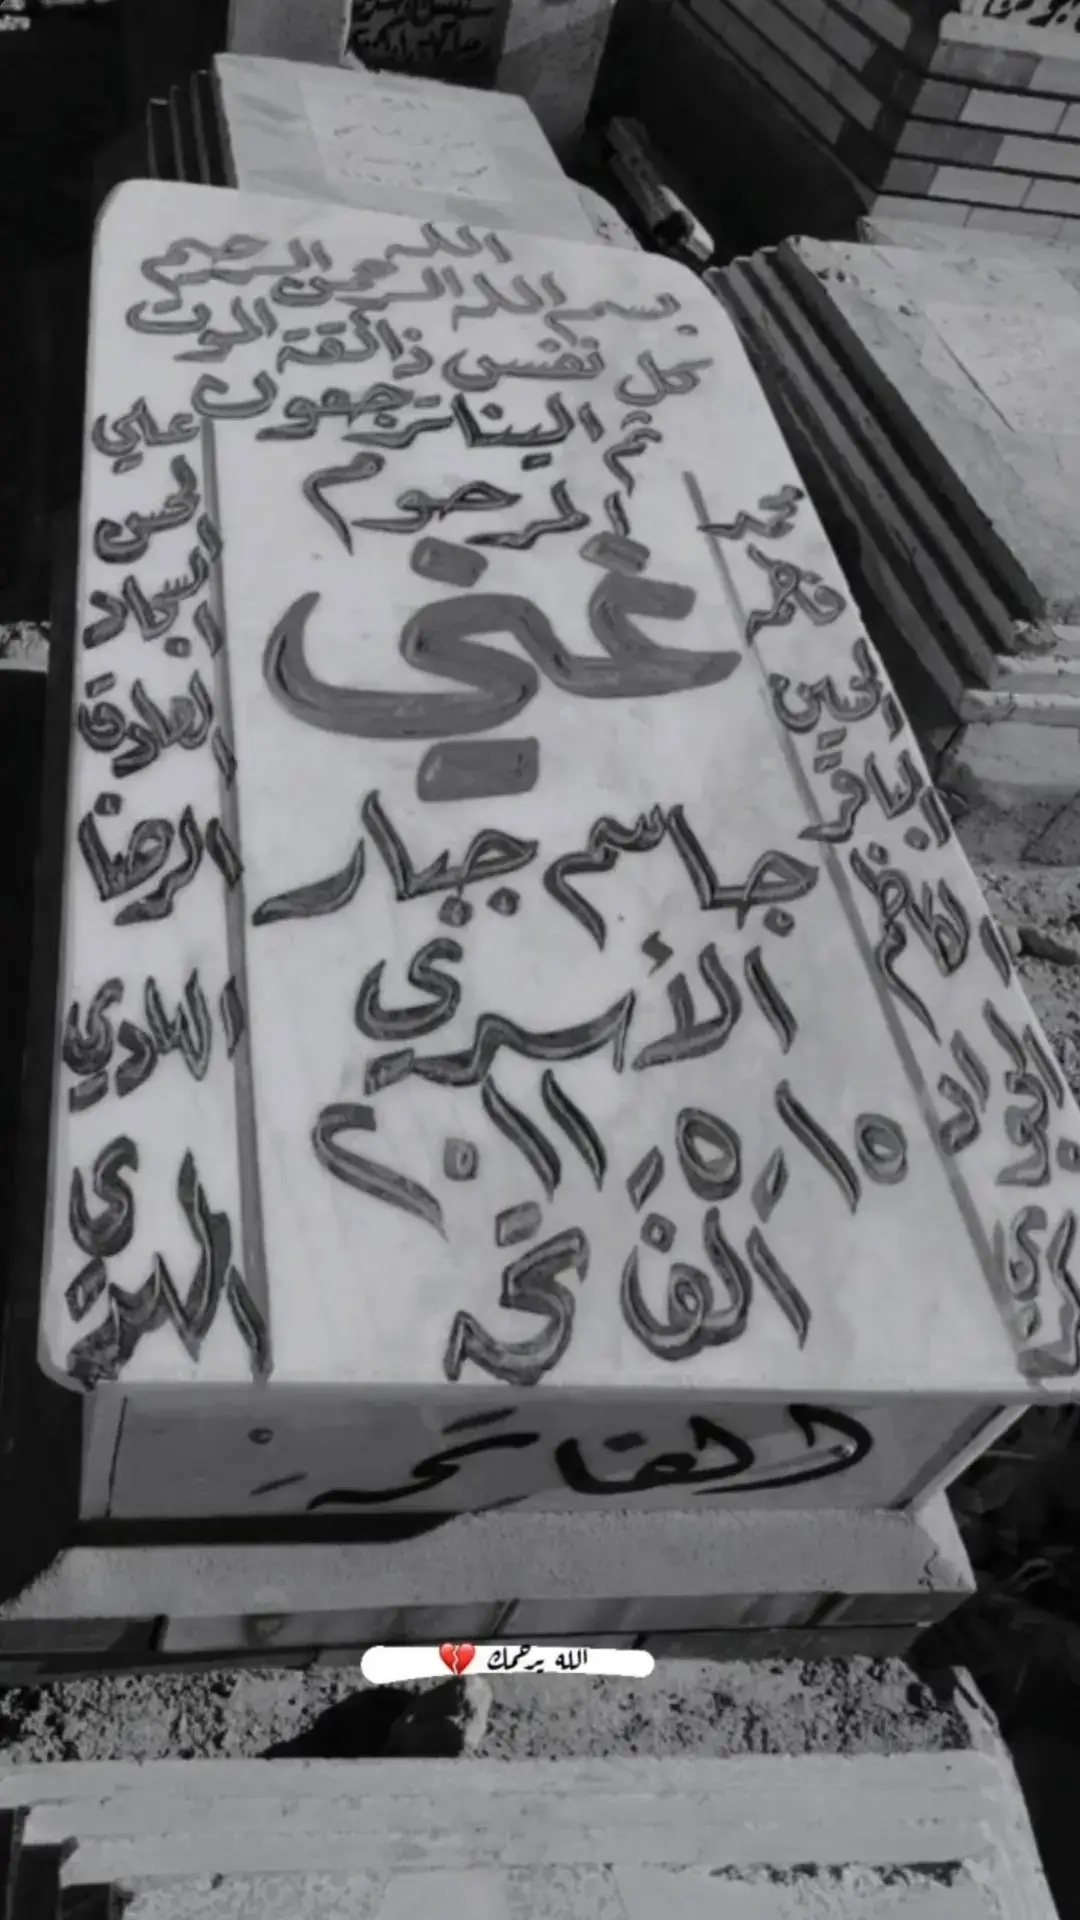 الله
بسم الله الرحمن الرحيم
كل نفس ذائقة الموت
ثم الينا ترجعون
المرحوم
غني
جاسم جبار
الأسدي
١٥ / ٥ / ٢٠١١
الفاتحه
محمد
فاطمه
الحسين
الباقر
الكاظم
الجواد
العسكري
علي
الحسن
السجاد
الصادق
الرضا
الهادي
المهدي
الفاتحة
الله يرحمك 💔